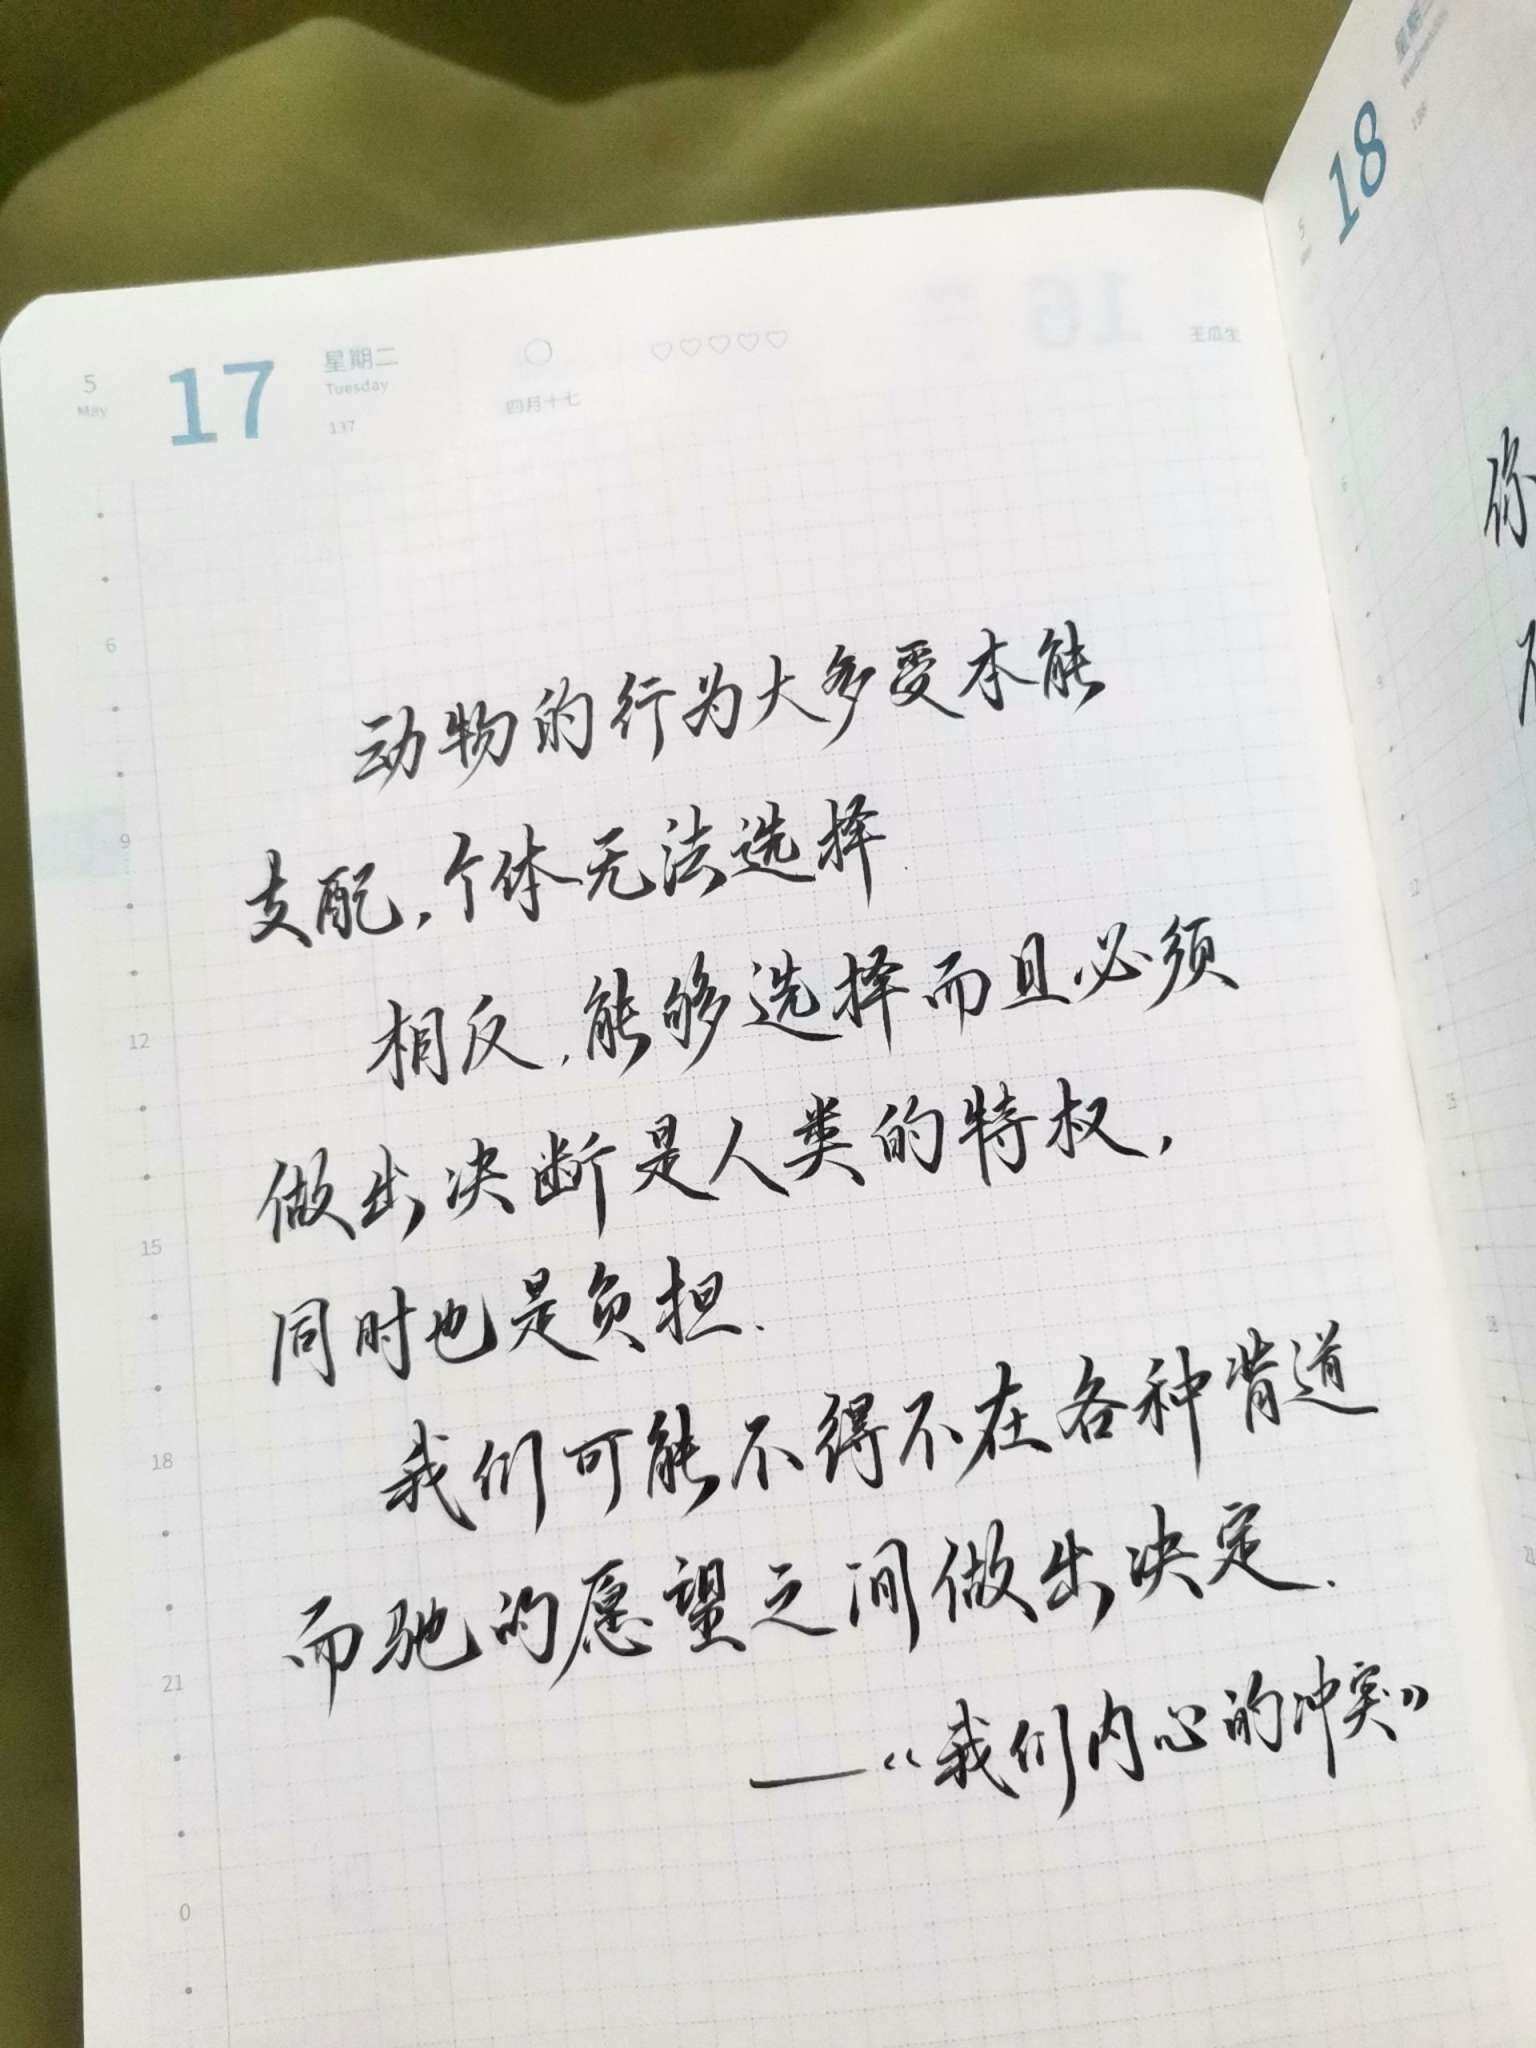 5
May
17
星期二
Tuesday
137
四月十七
王瓜生
动物的行为大多受本能
支配,个体无法选择
相反,能够选择而且必须
做出决断是人类的特权,
同时也是负担.
我们可能不得不在各种背道
而驰的愿望之间做出决定.
——《我们内心的冲突》
6
9
12
15
18
21
0
18
5
138
你
6
9
12
15
18
21